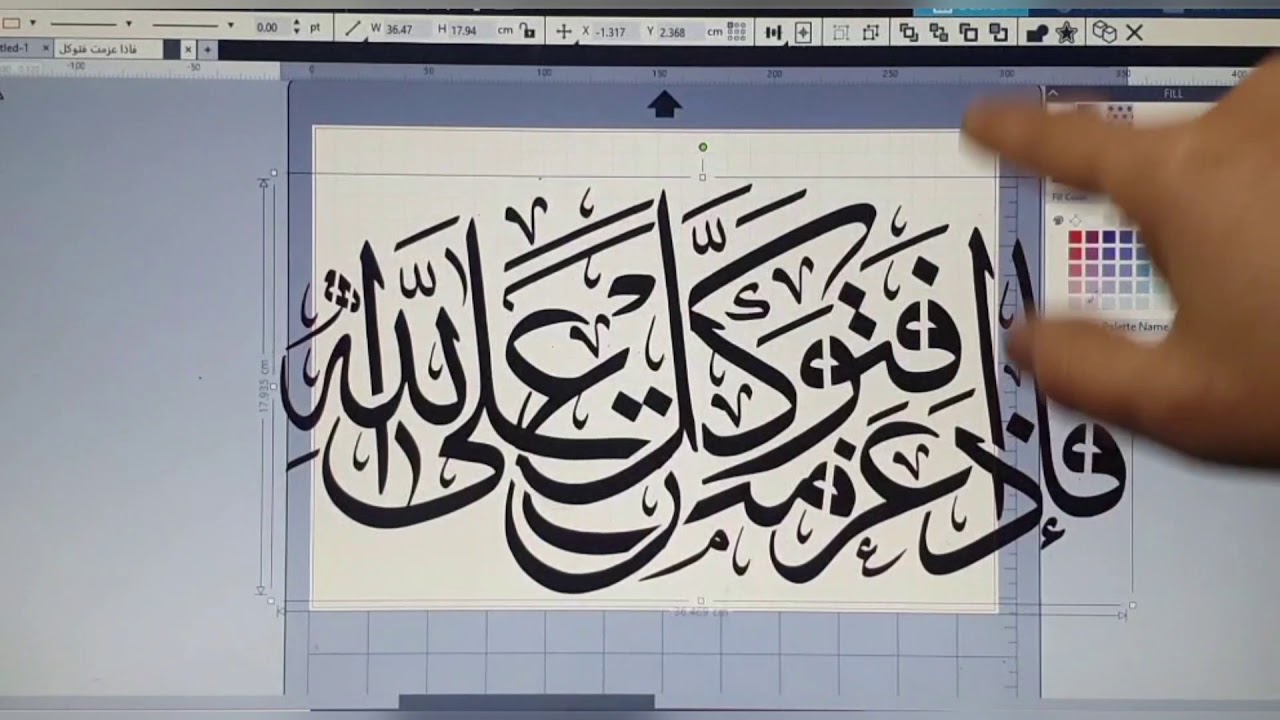 0.00 pt W 36.47 H 17.94 cm X -1.317 Y 2.368 cm
tled-1 × فاذا عزمت فتوكل × +
-100 -50 0 50 100 150 200 250 300 350 400
FILL
Fill Color
Palette Name
17.935 cm
فإذا عزمت فتوكل على الله
36.469 cm